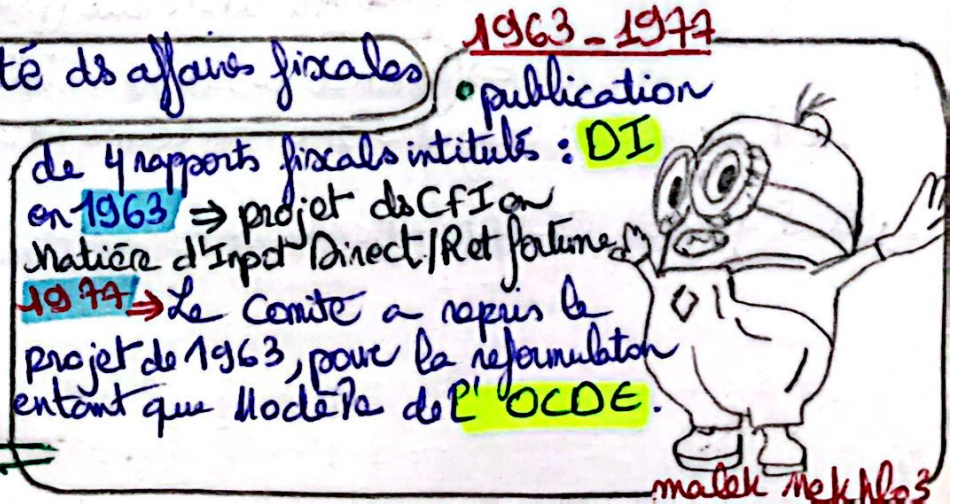 1963-1977
té ds affaires fiscales
• publication
de 4 rapports fiscals intitulés : DI
en 1963 ⇒ projet ds CFI en
Matière d'Impôt Direct/R et fortune
1977 ⇒ Le Comité a repris le
projet de 1963, pour la reformulaton
entant que Modèle de l'OCDE.
malek